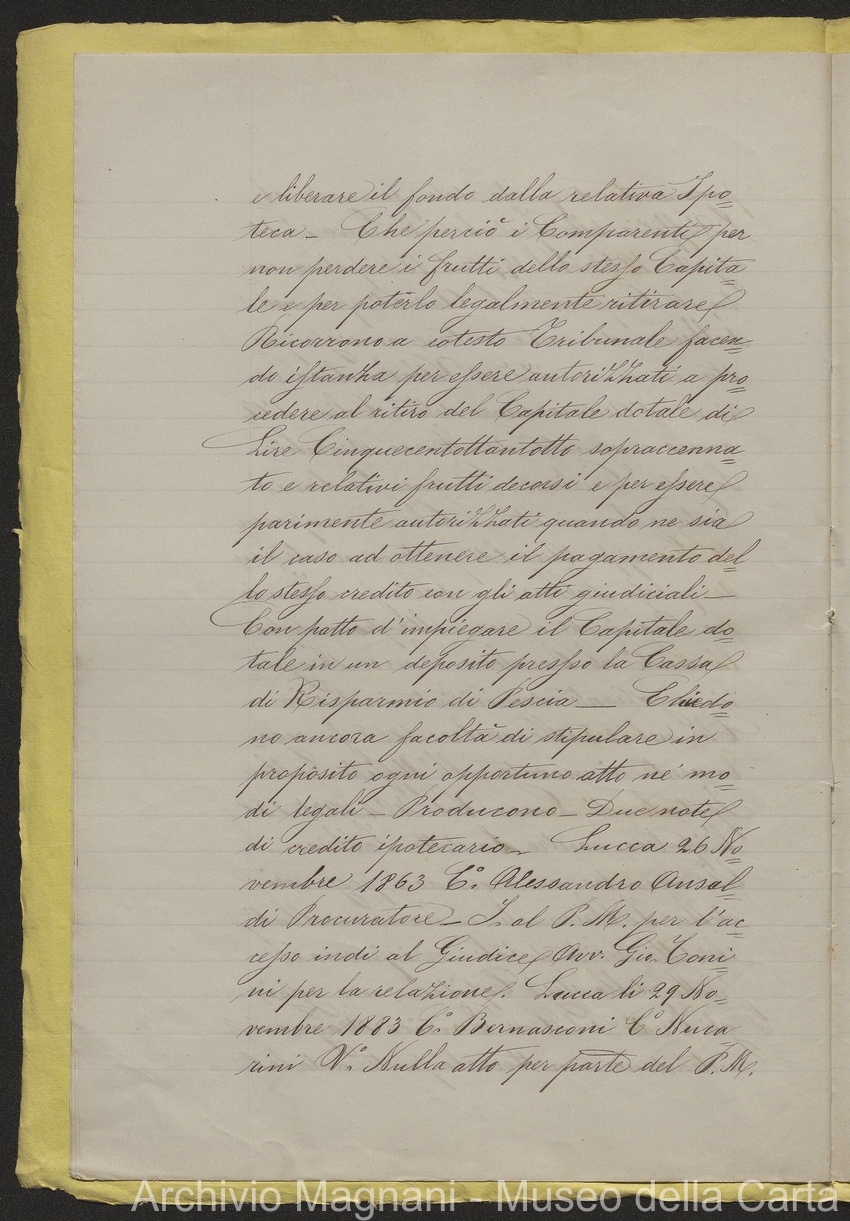 e liberare il fondo dalla relativa Ipo=
teca_ Che perciò i Comparenti per
non perdere i frutti dello stesso Capita=
le e per poterlo legalmente ritirare
Ricorrono a cotesto Tribunale facen=
do istanza per essere autorizzati a pro=
cedere al ritiro del Capitale dotale di
Lire Cinquecentottantotto sopraccenna=
to e relativi frutti decorsi e per essere
parimente autorizzati quando ne sia
il caso ad ottenere il pagamento del=
lo stesso credito con gli atti giudiciali_
Con patto d'impiegare il Capitale do=
tale in un deposito presso la Cassa
di Risparmio di Pescia_ Chiedo=
no ancora facoltà di stipulare in
proposito ogni opportuno atto ne' mo=
di legali_ Producono_ Due note
di credito ipotecario_ Lucca 26 No=
vembre 1863 C.° Alessandro Ansal=
di Procuratore_ al P. M. per l'ac=
cesso indi al Giudice Avv. Gio. Toni=
ni per la relazione. Lucca li 29 No=
vembre 1883 C.° Bernasconi C.°
V.° Nulla atto per parte del P. M.
Archivio Magnani - Museo della Carta